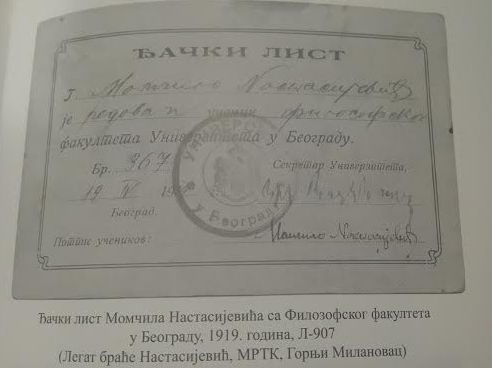 ЂАЧКИ ЛИСТ
Г. Момчило Настасијевић
је редован ученик филозофског
факултета Универзитета у Београду.
Бр. 367
Секретар Универзитета,
19 IV
Београд.
у Београду
Потпис учеников:
Момчило Настасијевић
Ђачки лист Момчила Настасијевића са Филозофског факултета
у Београду, 1919. година, Л-907
(Легат браће Настасијевић, МРТК, Горњи Милановац)